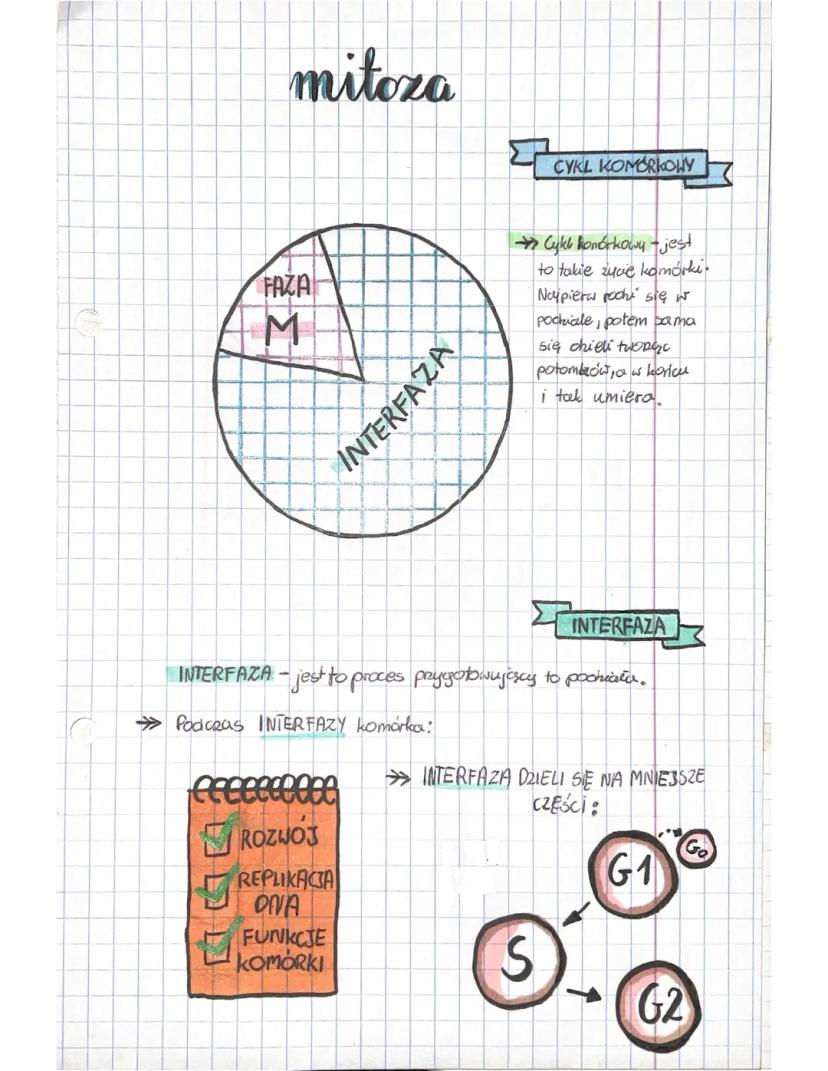 mitoza
CYKL KOMÓRKOWY
FAZA
M
INTERFAZA
Cykl komórkowy - jest
to takie życie komórki.
Najpierw rodzi się w
podziale, potem sama
się dzieli tworząc
potomków, a w końcu
i tak umiera.
INTERFAZA
INTERFAZA - jest to proces przygotowujący to podziału.
Podczas INTERFAZY komórka:
INTERFAZA DZIELI SIĘ NA MNIEJSZE
CZĘŚCI:
ROZWÓJ
REPLIKACJA
DNA
FUNKCJE
KOMÓRKI
G1
G0
S
G2